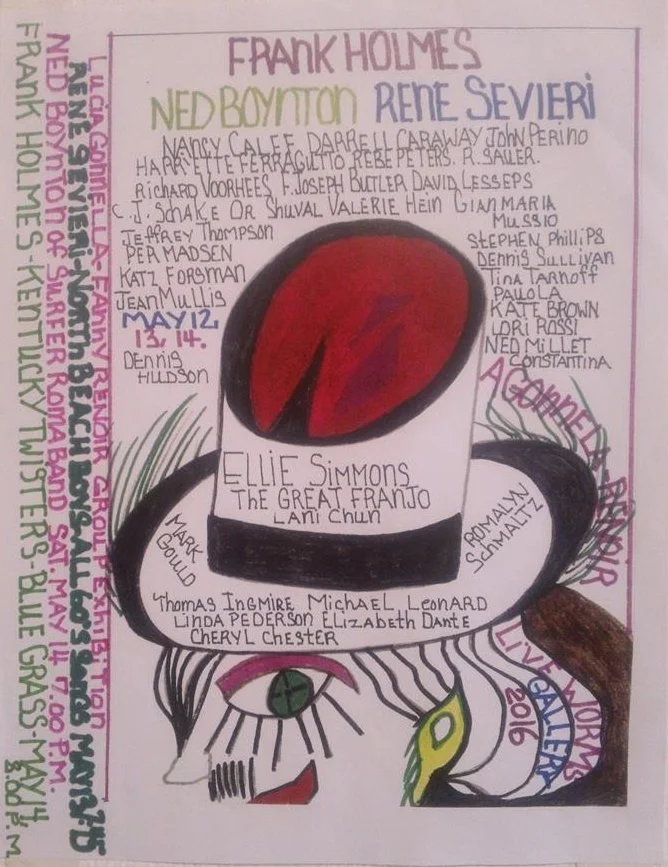 FRANK HOLMES
NED BOYNTON RENE SEVIERI
NANCY CALEF DARRELL CARAWAY JOHN PERINO
HARRYETTE FERRAGUTTO REBE PETERS. R. SAUER.
RICHARD VOORHEES F. JOSEPH BUTLER DAVID LESSEPS
C. J. SCHAKE OR SHUVAL VALERIE HEIN GIANMARIA
MUSSIO
JEFFREY THOMPSON
PER MADSEN
KATZ FORSMAN
JEAN MULLIS
MAY 12,
13, 14.
DENNIS
HUDSON
STEPHEN PHILLIPS
DENNIS SULLIVAN
TINA TARNOFF
PAULOLA
KATE BROWN
LORI ROSSI
NED MILLET
CONSTANTINA
AGONNELA-RENOIR
ELLIE SIMMONS
THE GREAT FRANJO
LANI CHUN
MARK
GOULD
ROMALYN
SCHMALTZ
THOMAS INGMIRE MICHAEL LEONARD
LINDA PEDERSON ELIZABETH DANTE
CHERYL CHESTER
LIVE WORMS
GALLERY
2016
LUCIA GONNELLA-FANNY RENOIR GROUP EXHIBITION
RENE SEVIERI-NORTH BEACH BOYS-ALL 60'S SONGS MAY 13/7:45
NED BOYNTON OF SURFER ROMA BAND SAT. MAY 14 7.00 P.M.
FRANK HOLMES-KENTUCKY TWISTERS-BLUE GRASS-MAY 14
8:00 P.M.